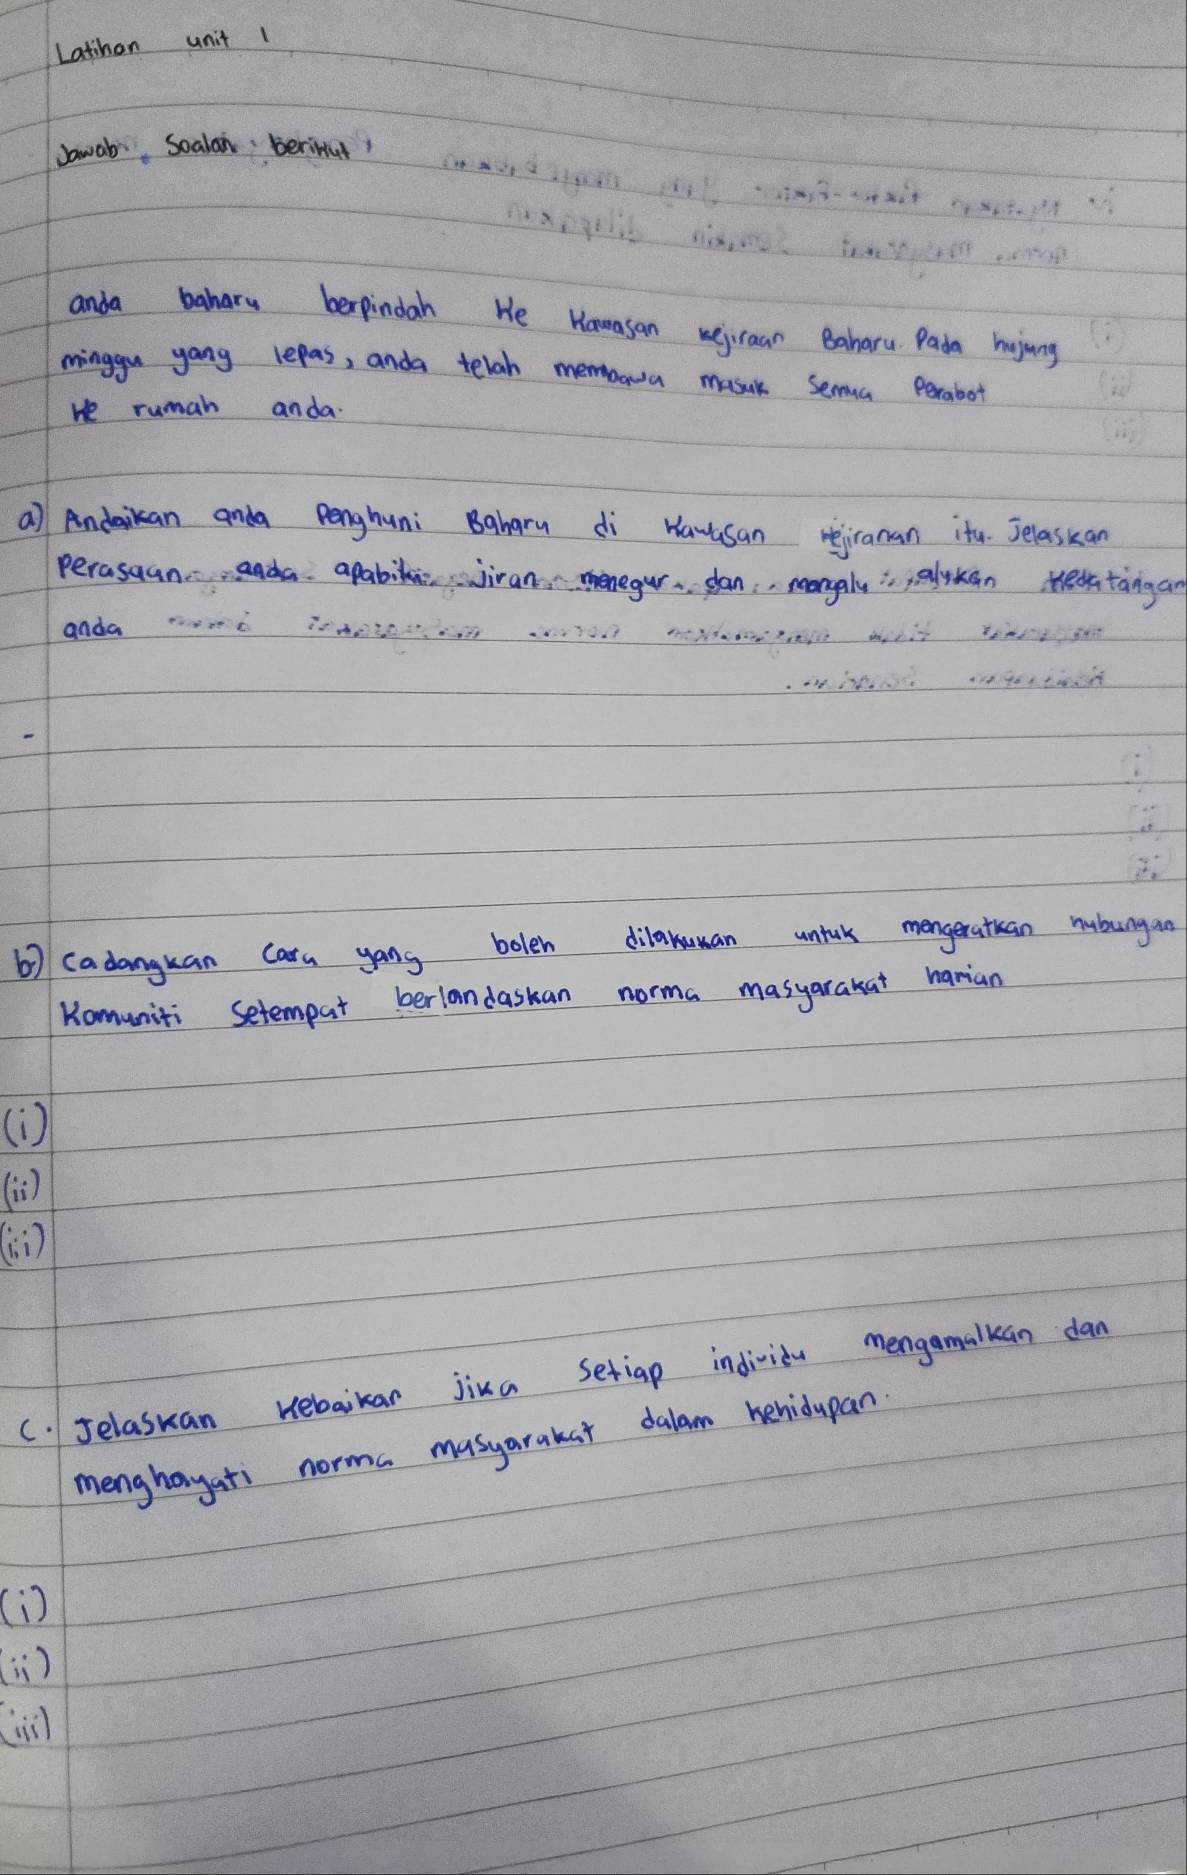 Latihan unit 1
Jawab soalan berikut
anda baharu berpindah ke kawasan kejiraan Baharu. Pada hujung
minggu yang lepas, anda telah membawa masuk semua Perabot
ke rumah anda.
a) Andaikan anda Penghuni Baharu di kawasan kejiranan itu. Jelaskan
perasaan anda apabila jiran menegur dan mengalu-alukan kedatangan
anda
-
b) cadangkan cara yang boleh dilakukan untuk mengeratkan hubungan
Komuniti Setempat berlandaskan norma masyarakat harian
(i)
(ii)
(iii)
C. Jelaskan kebaikan jika setiap individu mengamalkan dan
menghayati norma masyarakat dalam kehidupan.
(i)
(ii)
(iii)